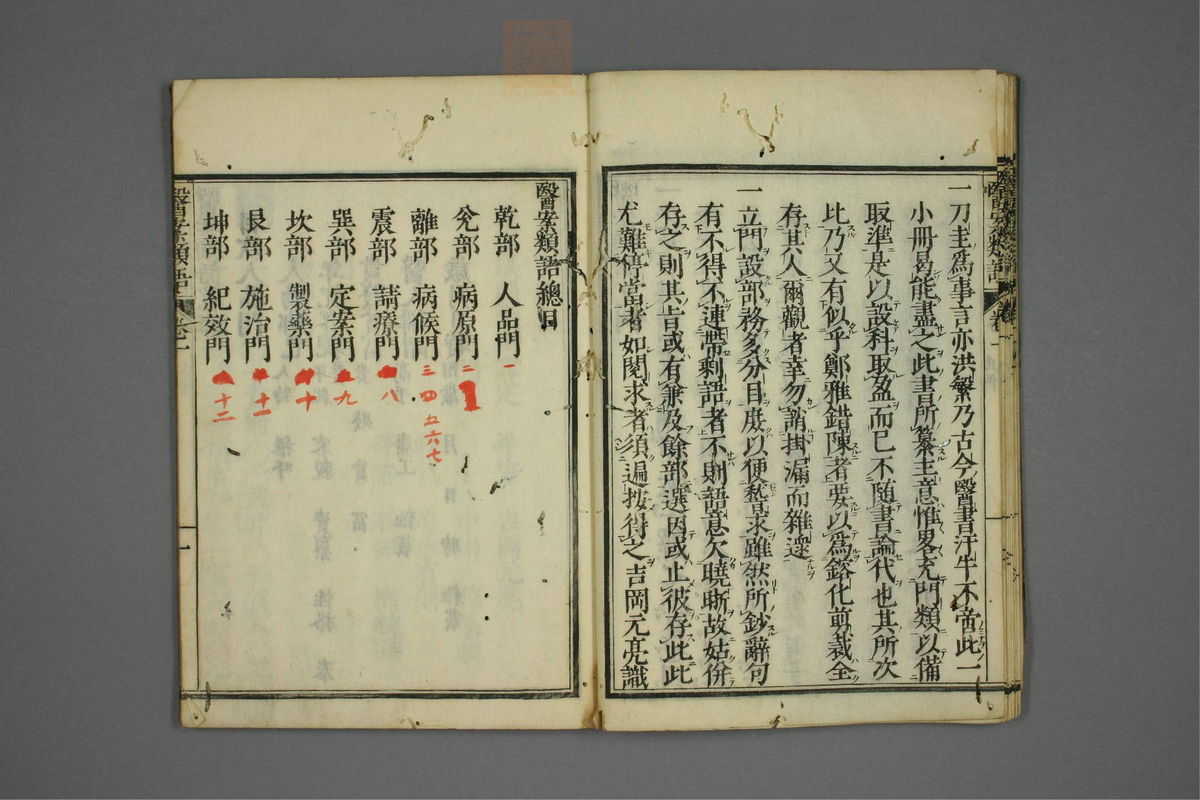 一刀圭爲事言亦洪繁乃古今醫書汗牛不啻此一
小冊曷能盡之此書所纂主意惟畧充門類以備
取準是以設科取盈而已不随書論代也其所次
比乃又有似乎鄭雅錯陳者要以爲鎔化剪裁全
存其人爾觀者幸勿誚掛漏而雜還
一立門設部務多分目庶以便嵆求雖然所鈔辭句
有不得不連帶剩語者不則語意欠曉晰故姑併
存之則其旨或有兼及餘部選因或止彼存此此
尤難停當者如閱求者須遍按得之吉岡元亮識
醫案類語總目
乾部 人品門 一
兌部 病原門 二
離部 病候門 三四五六七
震部 請療門 八
巽部 定案門 九
坎部 製藥門 十
艮部 施治門 十一
坤部 紀效門 十二
醫案類語
一